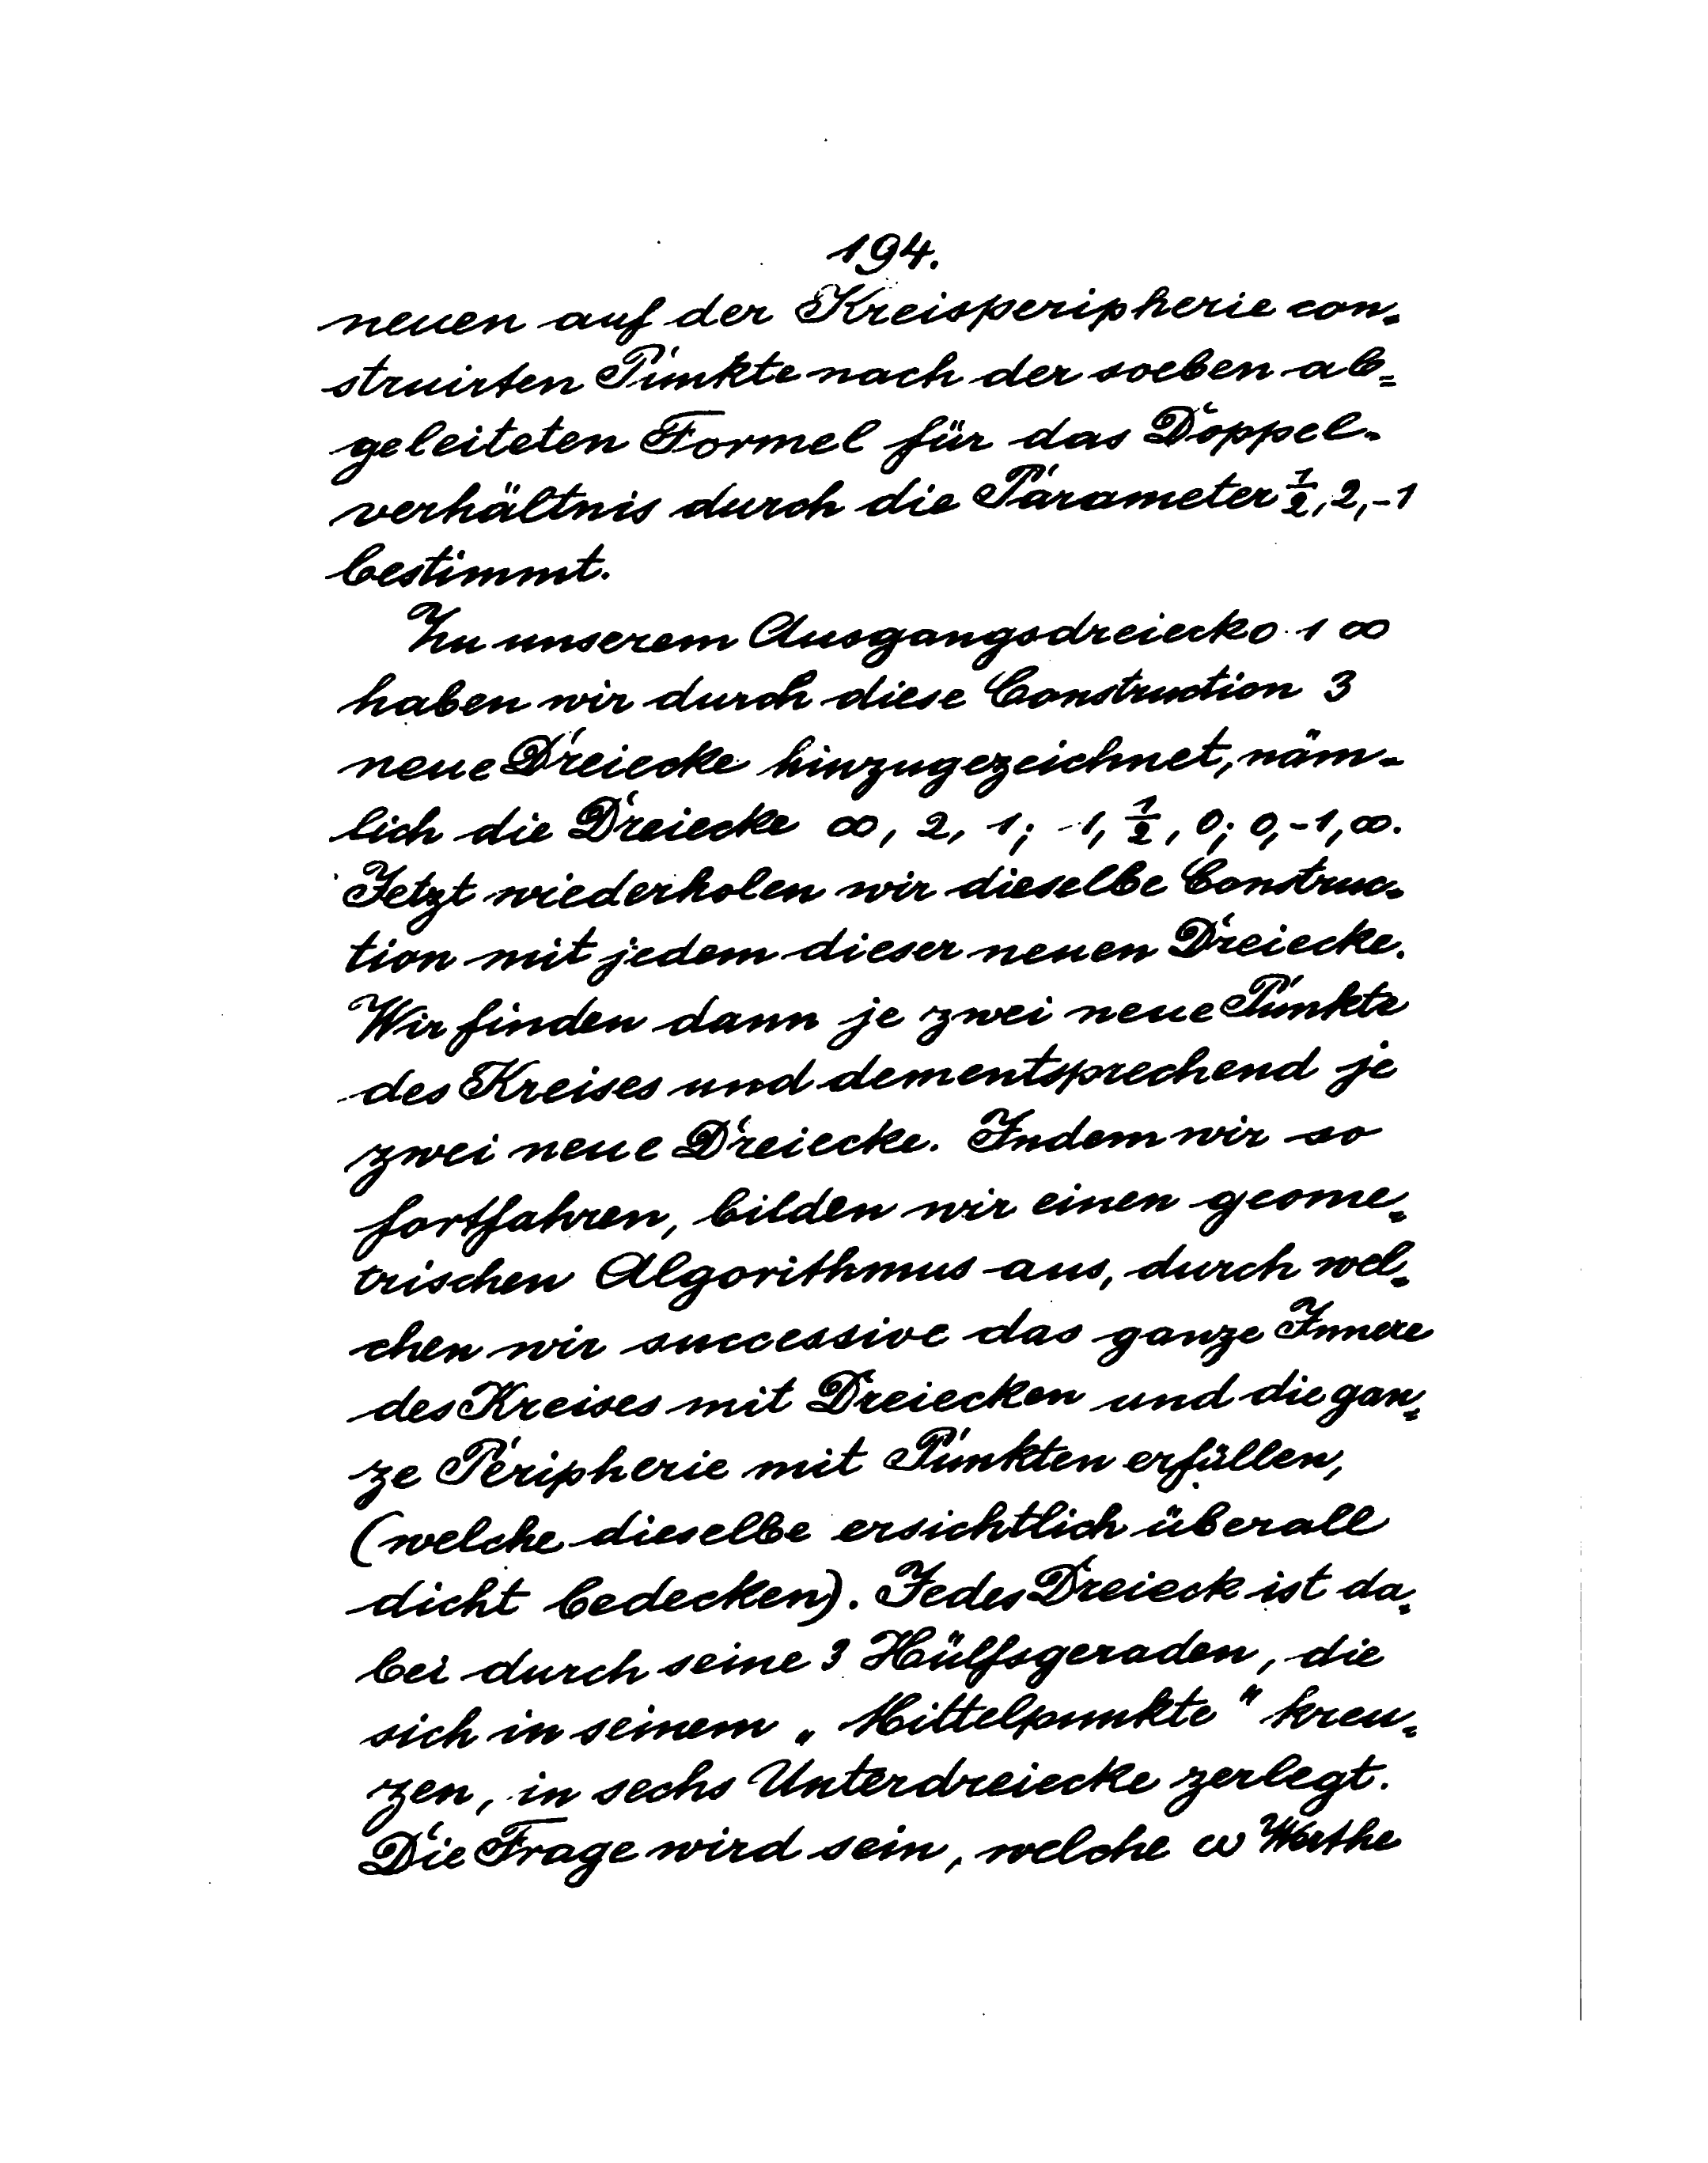 194.
neuen auf der Kreisperipherie con-
struirten Punkte nach der soeben ab=
geleiteten Formel für das Doppel-
verhältnis durch die Parameter 1/2, 2, -1
bestimmt.
Zu unserem Ausgangsdreiecko 1 ∞
haben wir durch diese Construction 3
neue Dreiecke hinzugezeichnet, näm-
lich die Dreiecke ∞, 2, 1; -1, 1/2, 0; 0, -1, ∞.
Jetzt wiederholen wir dieselbe Construc-
tion mit jedem dieser neuen Dreiecke.
Wir finden dann je zwei neue Punkte
des Kreises und dementsprechend je
zwei neue Dreiecke. Indem wir so
fortfahren, bilden wir einen geome-
trischen Algorithmus aus, durch wel-
chen wir successive das ganze Innere
des Kreises mit Dreiecken und die gan-
ze Peripherie mit Punkten erfüllen,
(welche dieselbe ersichtlich überall
dicht bedecken). Jedes Dreieck ist da-
bei durch seine 3 Hülfsgeraden, die
sich in seinem „Mittelpunkte" kreu-
zen, in sechs Unterdreiecke zerlegt.
Die Frage wird sein, welche ω Werthe